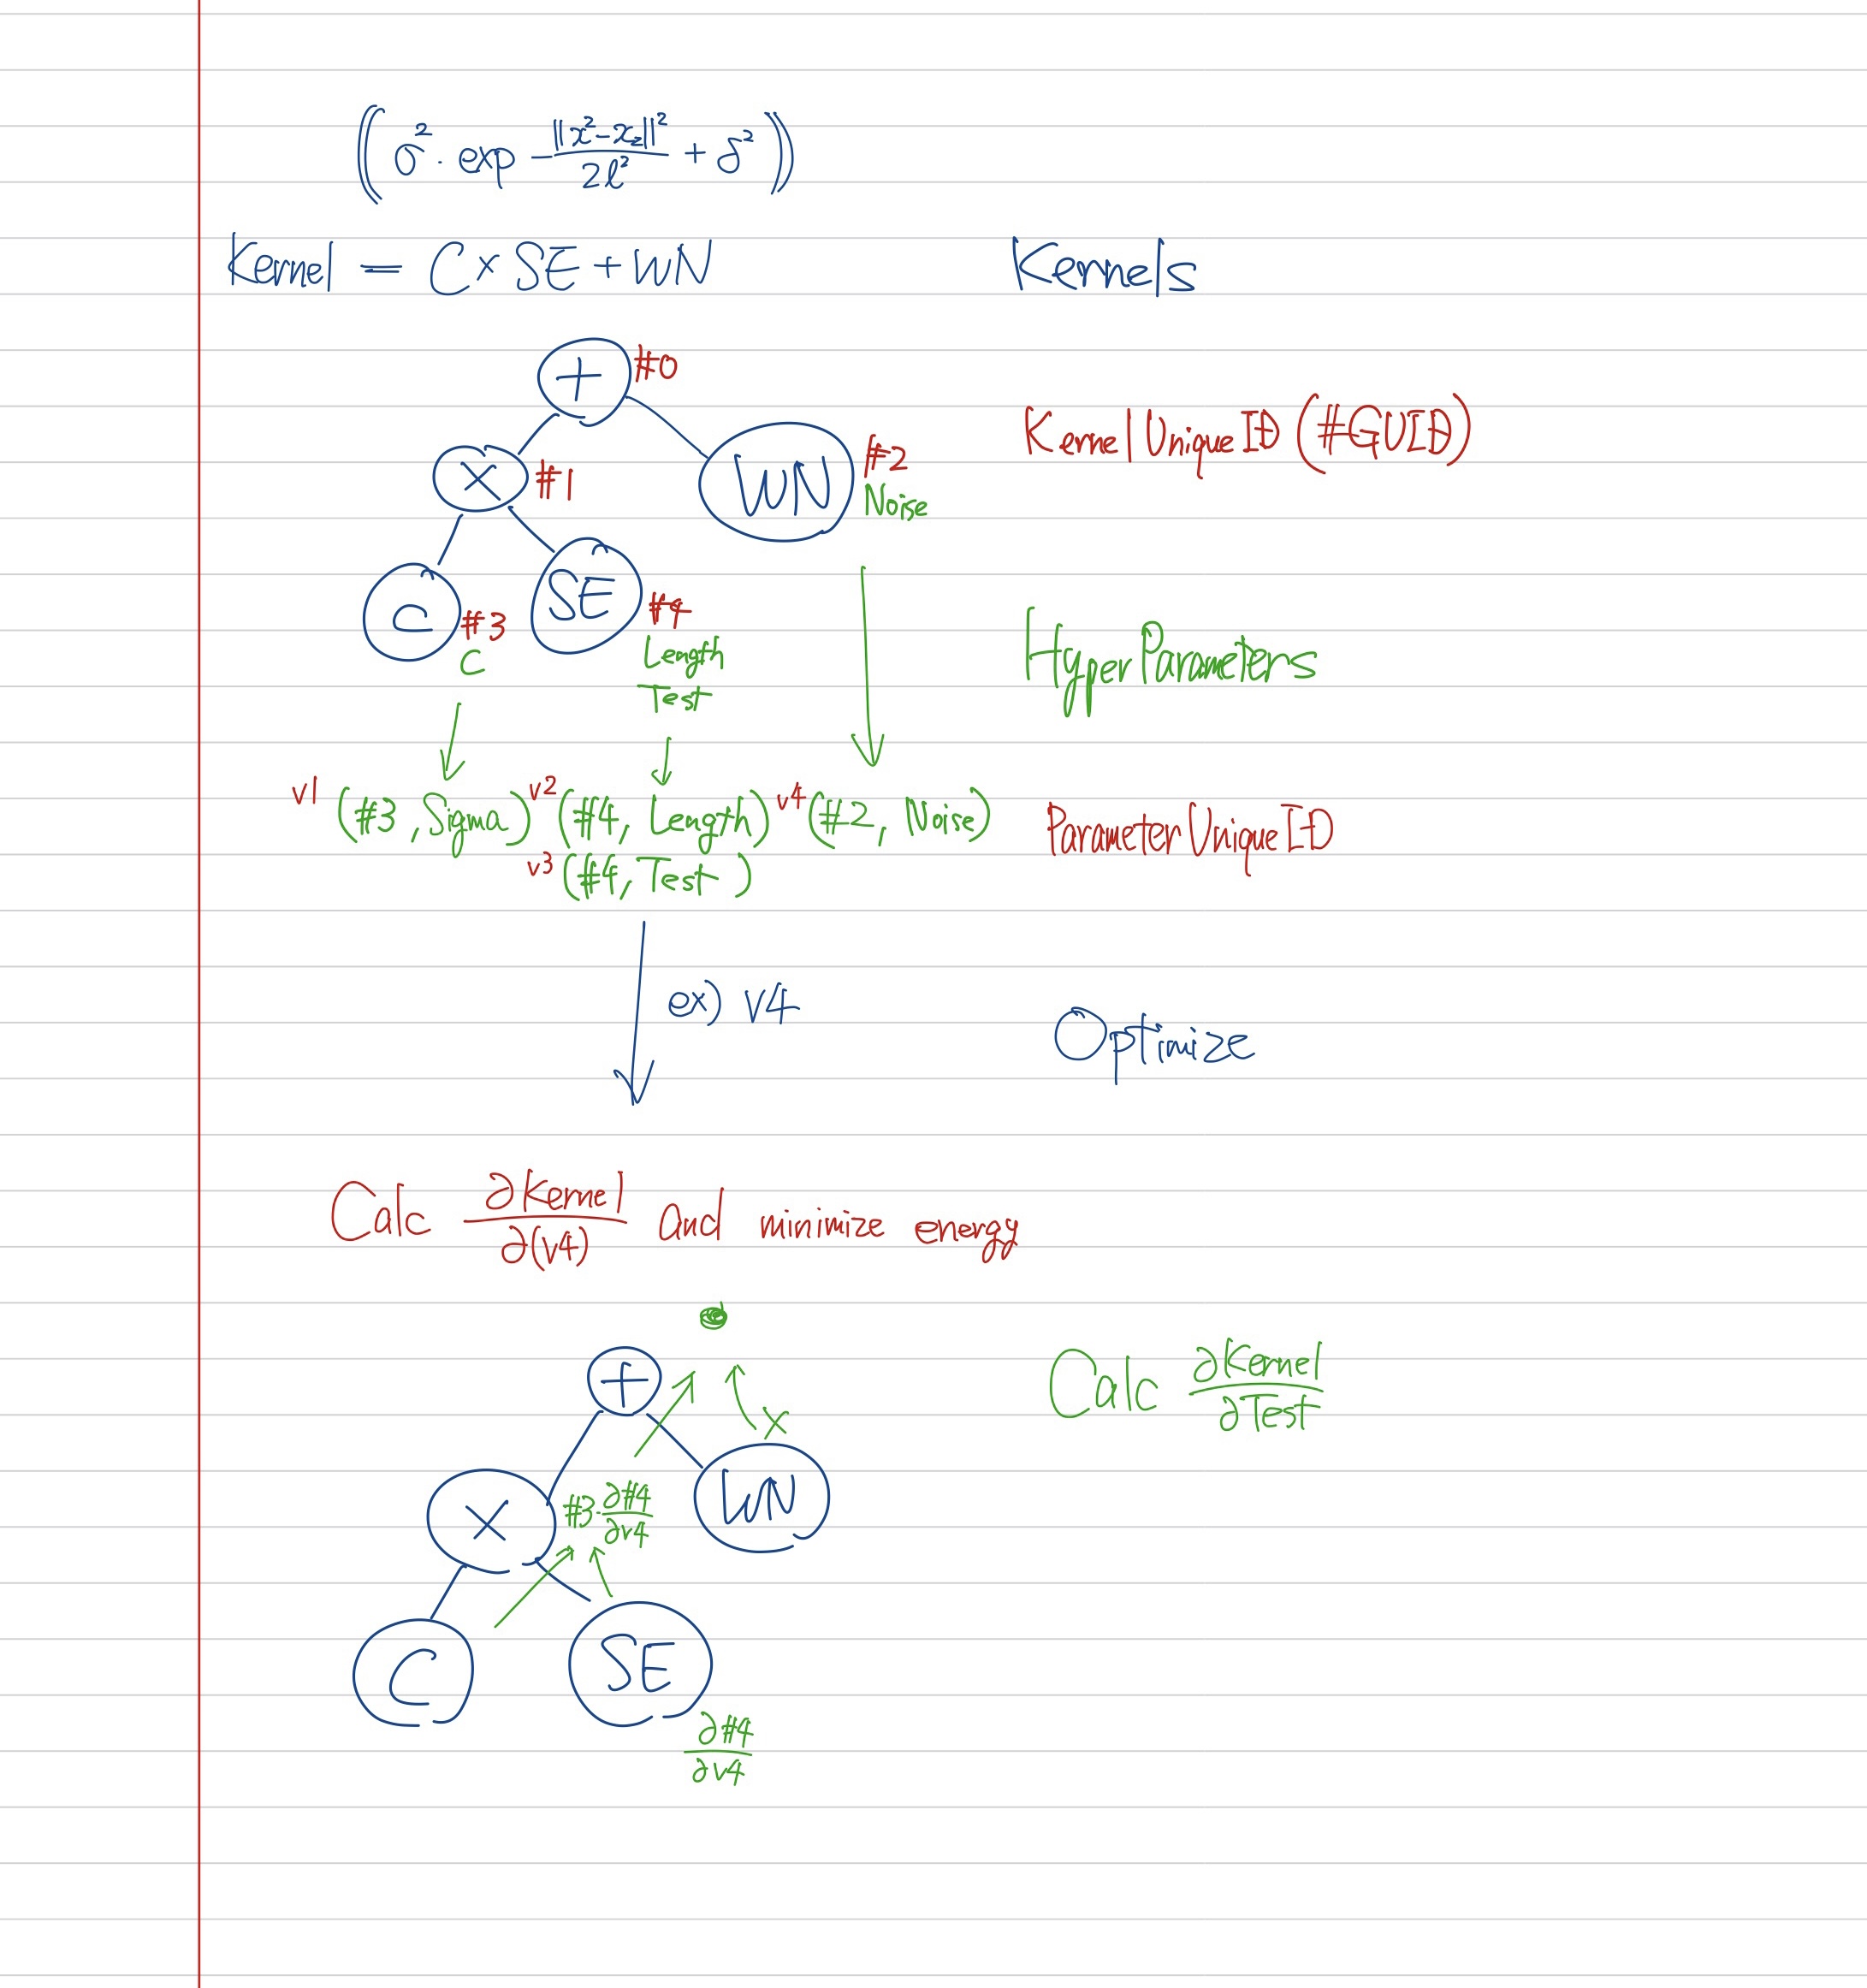 ((σ² · exp −‖x²−x₂‖²/2ℓ² + δ²))
Kernel = C × SE + WN
Kernels
+ #0
× #1
WN #2
Noise
Kernel Unique ID (#GUID)
C #3
C
SE #4
Length
Test
HyperParameters
v1 (#3, Sigma) v2 (#4, Length) v4 (#2, Noise)
v3 (#4, Test)
Parameter Unique ID
ex) v4
Optimize
Calc ∂Kernel/∂(v4) and minimize energy
Calc ∂Kernel/∂Test
+
×
#3 · ∂#4/∂v4
WN
×
C
SE
∂#4/∂v4